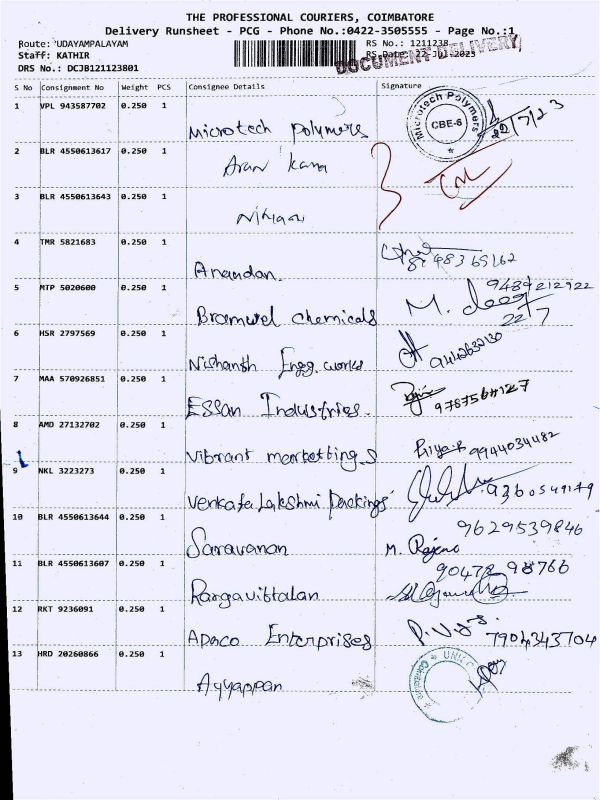 THE PROFESSIONAL COURIERS, COIMBATORE
Delivery Runsheet - PCG - Phone No.:0422-3505555 - Page No.:1
Route: UDAYAMPALAYAM RS No.: 1211238
Staff: KATHIR RS Date: 22-Jul-2023
DOCUMENT DELIVERY
DRS No.: DCJB121123801
S No Consignment No Weight PCS Consignee Details Signature
1 VPL 943587702 0.250 1 Microtech polymers Microtech Polymers CBE-6 22/7/23
2 BLR 4550613617 0.250 1 Arun
3 BLR 4550613643 0.250 1
4 TMR 5821683 0.250 1 Anandan.
5 MTP 5020600 0.250 1 Bramwel chemicals M. 9489212922 22/7
6 HSR 2797569 0.250 1 Nishansh Engg. works
7 MAA 570926851 0.250 1 ESSAN Industries.
8 AMD 27132702 0.250 1 Vibrant marketting.S Priya 9944034482
9 NKL 3223273 0.250 1 Venkatalakshmi packings
10 BLR 4550613644 0.250 1 Saravanan M. 9629539846
11 BLR 4550613607 0.250 1 Rangavittalan 90478 98766
12 RKT 9236091 0.250 1 Apaco Enterprises 7904343704
13 HRD 20260866 0.250 1 Ayyappan